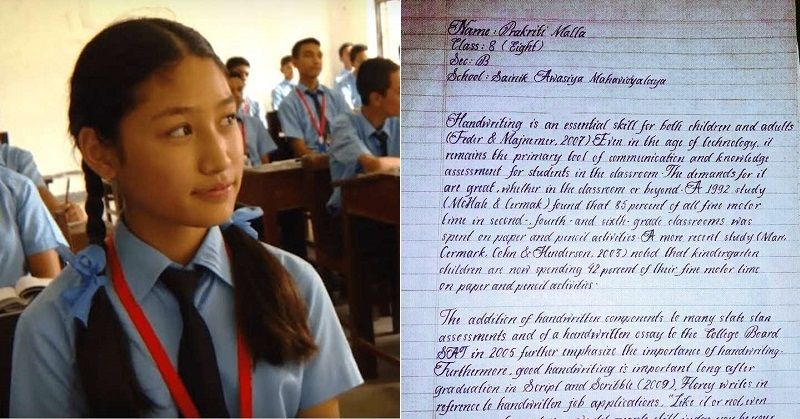 Name: Prakriti Malla
Class: 8 (Eight)
Sec: B
School: Sainik Awasiya Mahavidyalaya
Handwriting is an essential skill for both children and adults
(Feder & Majnemer, 2007) Even in the age of technology, it
remains the primary tool of communication and knowledge
assessment for students in the classroom. The demands for it
are great, whether in the classroom or beyond. A 1992 study
(McHale & Cermak) found that 85 percent of all fine motor
time in second-, fourth- and sixth-grade classrooms was
spent on paper and pencil activities. A more recent study (Marr,
Cermark, Cohn & Henderson, 2003) noted that kindergarten
children are now spending 42 percent of their fine motor time
on paper and pencil activities.
The addition of handwritten components to many state stan
assessments and of a handwritten essay to the College Board
SAT in 2005 further emphasize the importance of handwriting.
Furthermore, good handwriting is important long after
graduation in Script and Scribble (2009), Florey writes in
reference to handwritten job applications, "Like it or not, even